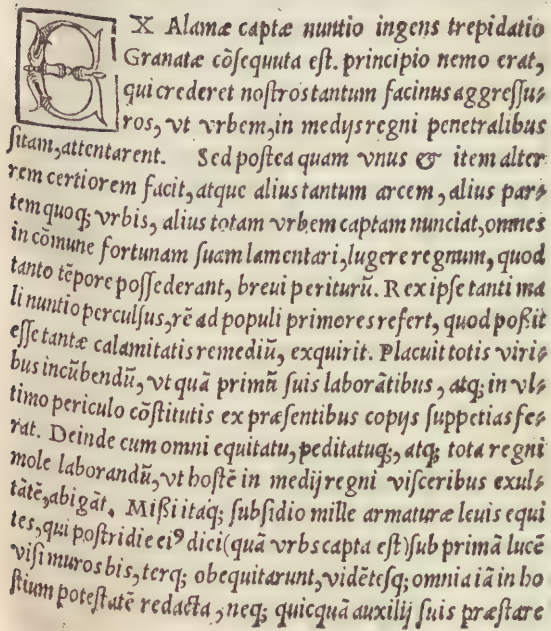 EX Alamæ captæ nuntio ingens trepidatio
Granatæ cõsequuta est. principio nemo erat,
qui crederet nostros tantum facinus aggressu-
ros, vt vrbem, in medijs regni penetralibus
sitam, attentarent. Sed postea quam vnus & item alter
rem certiorem facit, atque alius tantum arcem, alius par-
tem quoq; vrbis, alius totam vrbem captam nunciat, omnes
in cõmune fortunam suam lamentari, lugere regnum, quod
tanto tẽpore possederant, breui periturũ. Rex ipse tanti ma
li nuntio perculsus, rẽ ad populi primores refert, quod poßit
esse tantæ calamitatis remediũ, exquirit. Placuit totis viri-
bus incũbendũ, vt quã primũ suis laborãtibus, atq; in vl-
timo periculo cõstitutis ex præsentibus copijs suppetias fe-
rat. Deinde cum omni equitatu, peditatuq;, atq; tota regni
mole laborandũ, vt hostẽ in medij regni visceribus exul-
tãtẽ, abigãt. Mißi itaq; subsidio mille armaturæ leuis equi
tes, qui postridie eiꝰ diei (quã vrbs capta est) sub primã lucẽ
visi muros bis, terq; obequitarunt, vidẽtesq; omnia iã in ho
stium potestatẽ redacta, neq; quicquã auxilij suis præstare